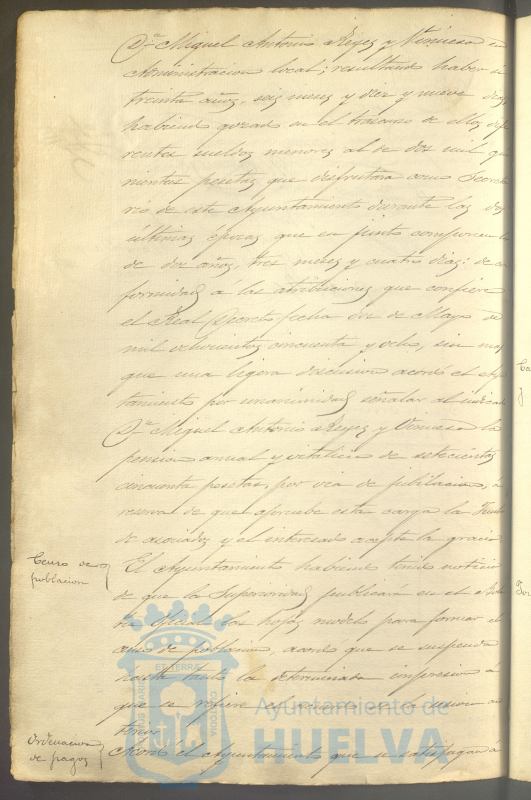 Dn. Miguel Antonio Reyes y Vinuesa en
Administracion local; resultando haber
treinta años, seis meses y diez y nueve dias
habiendo gozado en el trascurso de ellos dife
rentes sueldos menores al de dos mil qui
nientas pesetas que disfrutara como Secreta
rio de este Ayuntamiento durante las dos
últimas épocas que en junto componen
de dos años, tres meses y cuatro dias: de con
formidad á las atribuciones que confiere
el Real Decreto fecha dos de Mayo de
mil ochocientos cincuenta y ocho, sin mas
que una ligera discusion acordó el Ayun
tamiento por unanimidad señalar al indicado
Dn. Miguel Antonio Reyes y Vinuesa la
pension anual y vitalicia de setecientas
cincuenta pesetas, por via de jubilacion, á
reserva de que apruebe esta carga la Junta
de asociados y el interesado acepte la gracia
Censo de poblacion
El Ayuntamiento habiendo tenido noticia
de que la Superioridad publicará en el Bole
tin oficial las hojas modelo para formar el
censo de poblacion, acordó que se suspenda
hasta tanto la determinada impresion á
que se refiere el acuerdo de la sesion an
terior
Ordenacion de pagos
Acordó el Ayuntamiento que se satisfagan á
ET TERRÆ
CUSTODIA
Ayuntamiento de
HUELVA